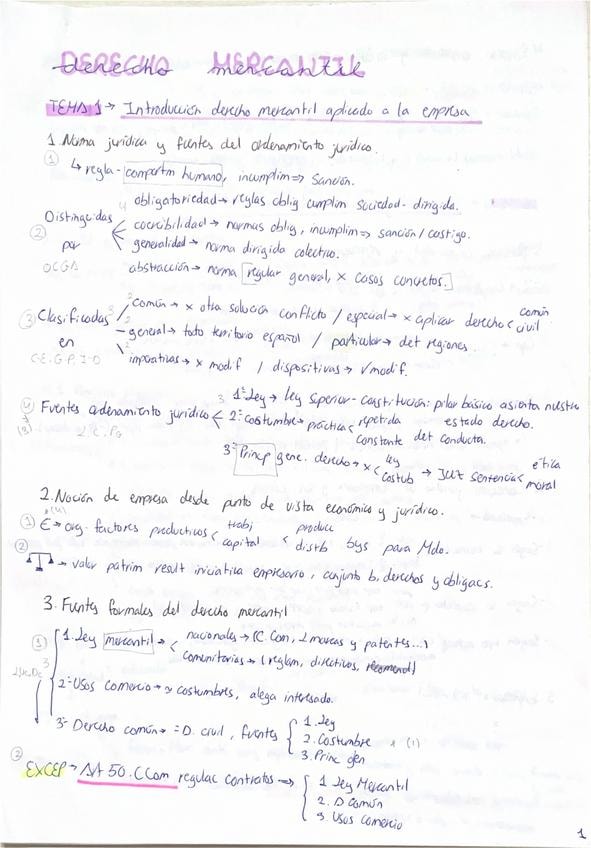 DERECHO MERCANTIL
derecho mercantil
TEMA 1 → Introducción derecho mercantil aplicado a la empresa
1. Norma jurídica y fuentes del ordenamiento jurídico.
① ↳ regla - comportm humano, incumplim ⇒ sanción.
obligatoriedad → reglas oblig cumplim sociedad - dirigida.
Distinguidas coercibilidad → normas oblig, incumplim ⇒ sanción / castigo.
② por generalidad → norma dirigida colectivo.
OCGA abstracción → norma regular general, x casos concretos.
común → x otra solución conflicto / especial → x aplicar derecho < común civil
③ Clasificadas general → todo territorio español / particular → det regiones.
en imperativas → x modif / dispositivas → √ modif.
C-E.G.P.I-D
1º Ley → Ley Superior - Constitución: pilar básico asienta nuestro estado derecho.
④ Fuentes ordenamiento jurídico < 2º costumbre → práctica < repetida constante det conducta.
L.C.PG
3º Princp gene. derecho → x < ley costub → Juz sentencia < ética moral
2. Noción de empresa desde punto de vista económico y jurídico.
① € → org. factores productivos < trabj capital < produce distb bys para Mdo.
② → valor patrim result iniciativa empresario, conjunto b. derechos y obligacs.
3. Funtes formales del derecho mercantil
① 1. Ley mercantil → < nacionales → (C. Com, L marcas y patentes...)
comunitarias → (reglam, directivas, recomend)
2º Usos comercio → costumbres, alega interesado.
3º Derecho común → = D. civil, fuentes { 1. Ley
2. Costumbre (1)
3. Princ gen
② EXCEP → Art 50. CCom regulac contratos → { 1 Ley Mercantil
2. D común
3 Usos comercio
1